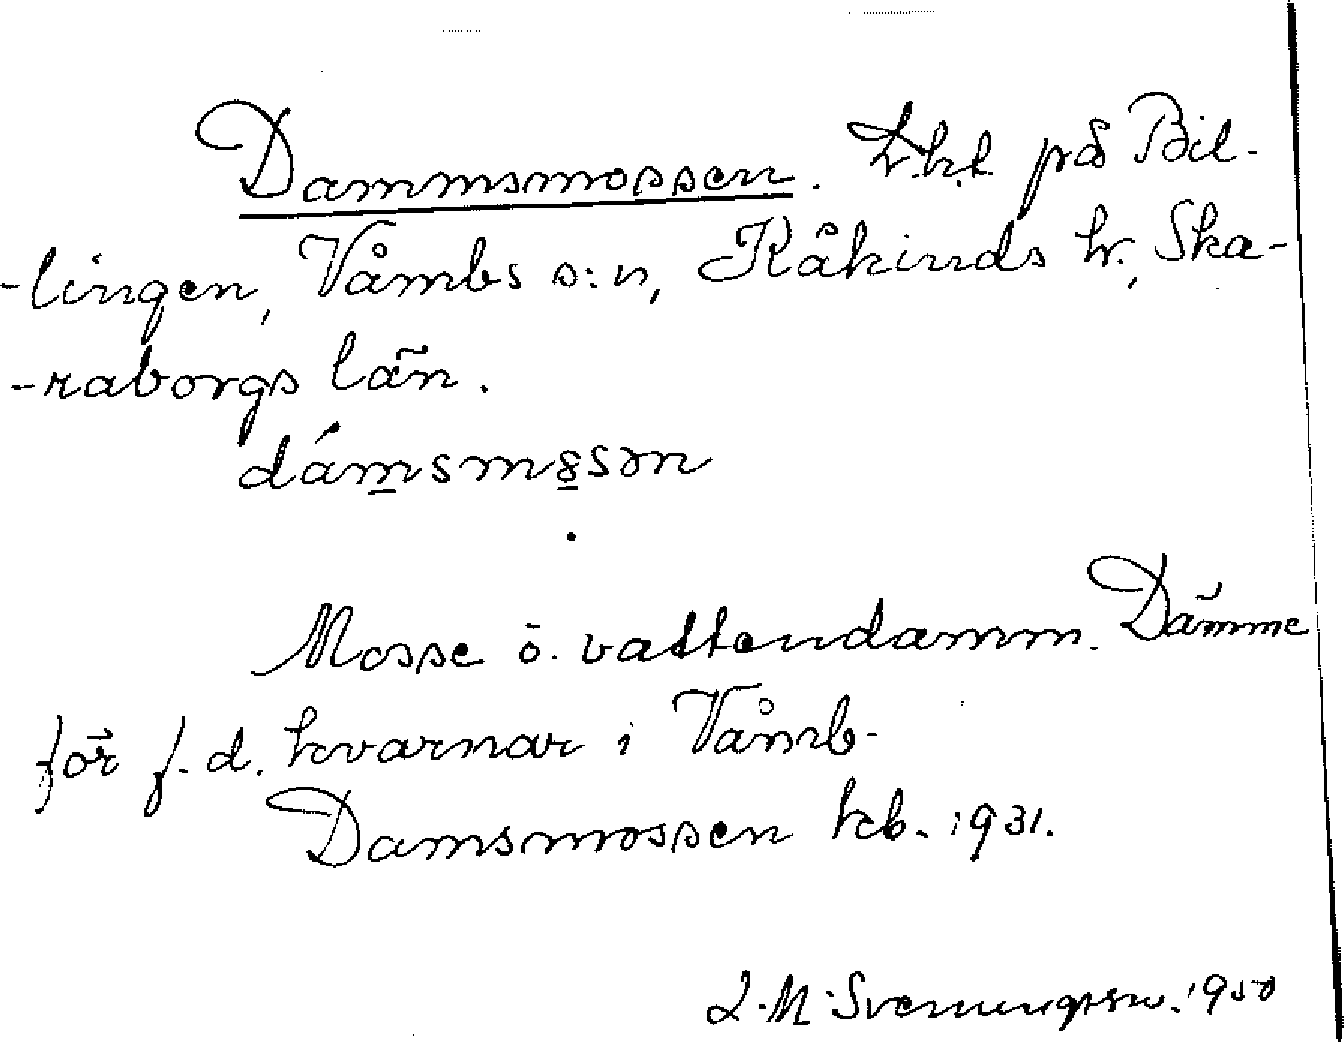 Dammsmossen. t.k.l. på Bil-
-lingen, Våmbs s:n, Kåkinds hr., Ska-
-raborgs län.
dámsmssən
Mosse o. vattendamm. Dämme
för f.d. kvarnar i Våmb.
Damsmossen kb. 1931.
L.M. Svenungsson. 1950